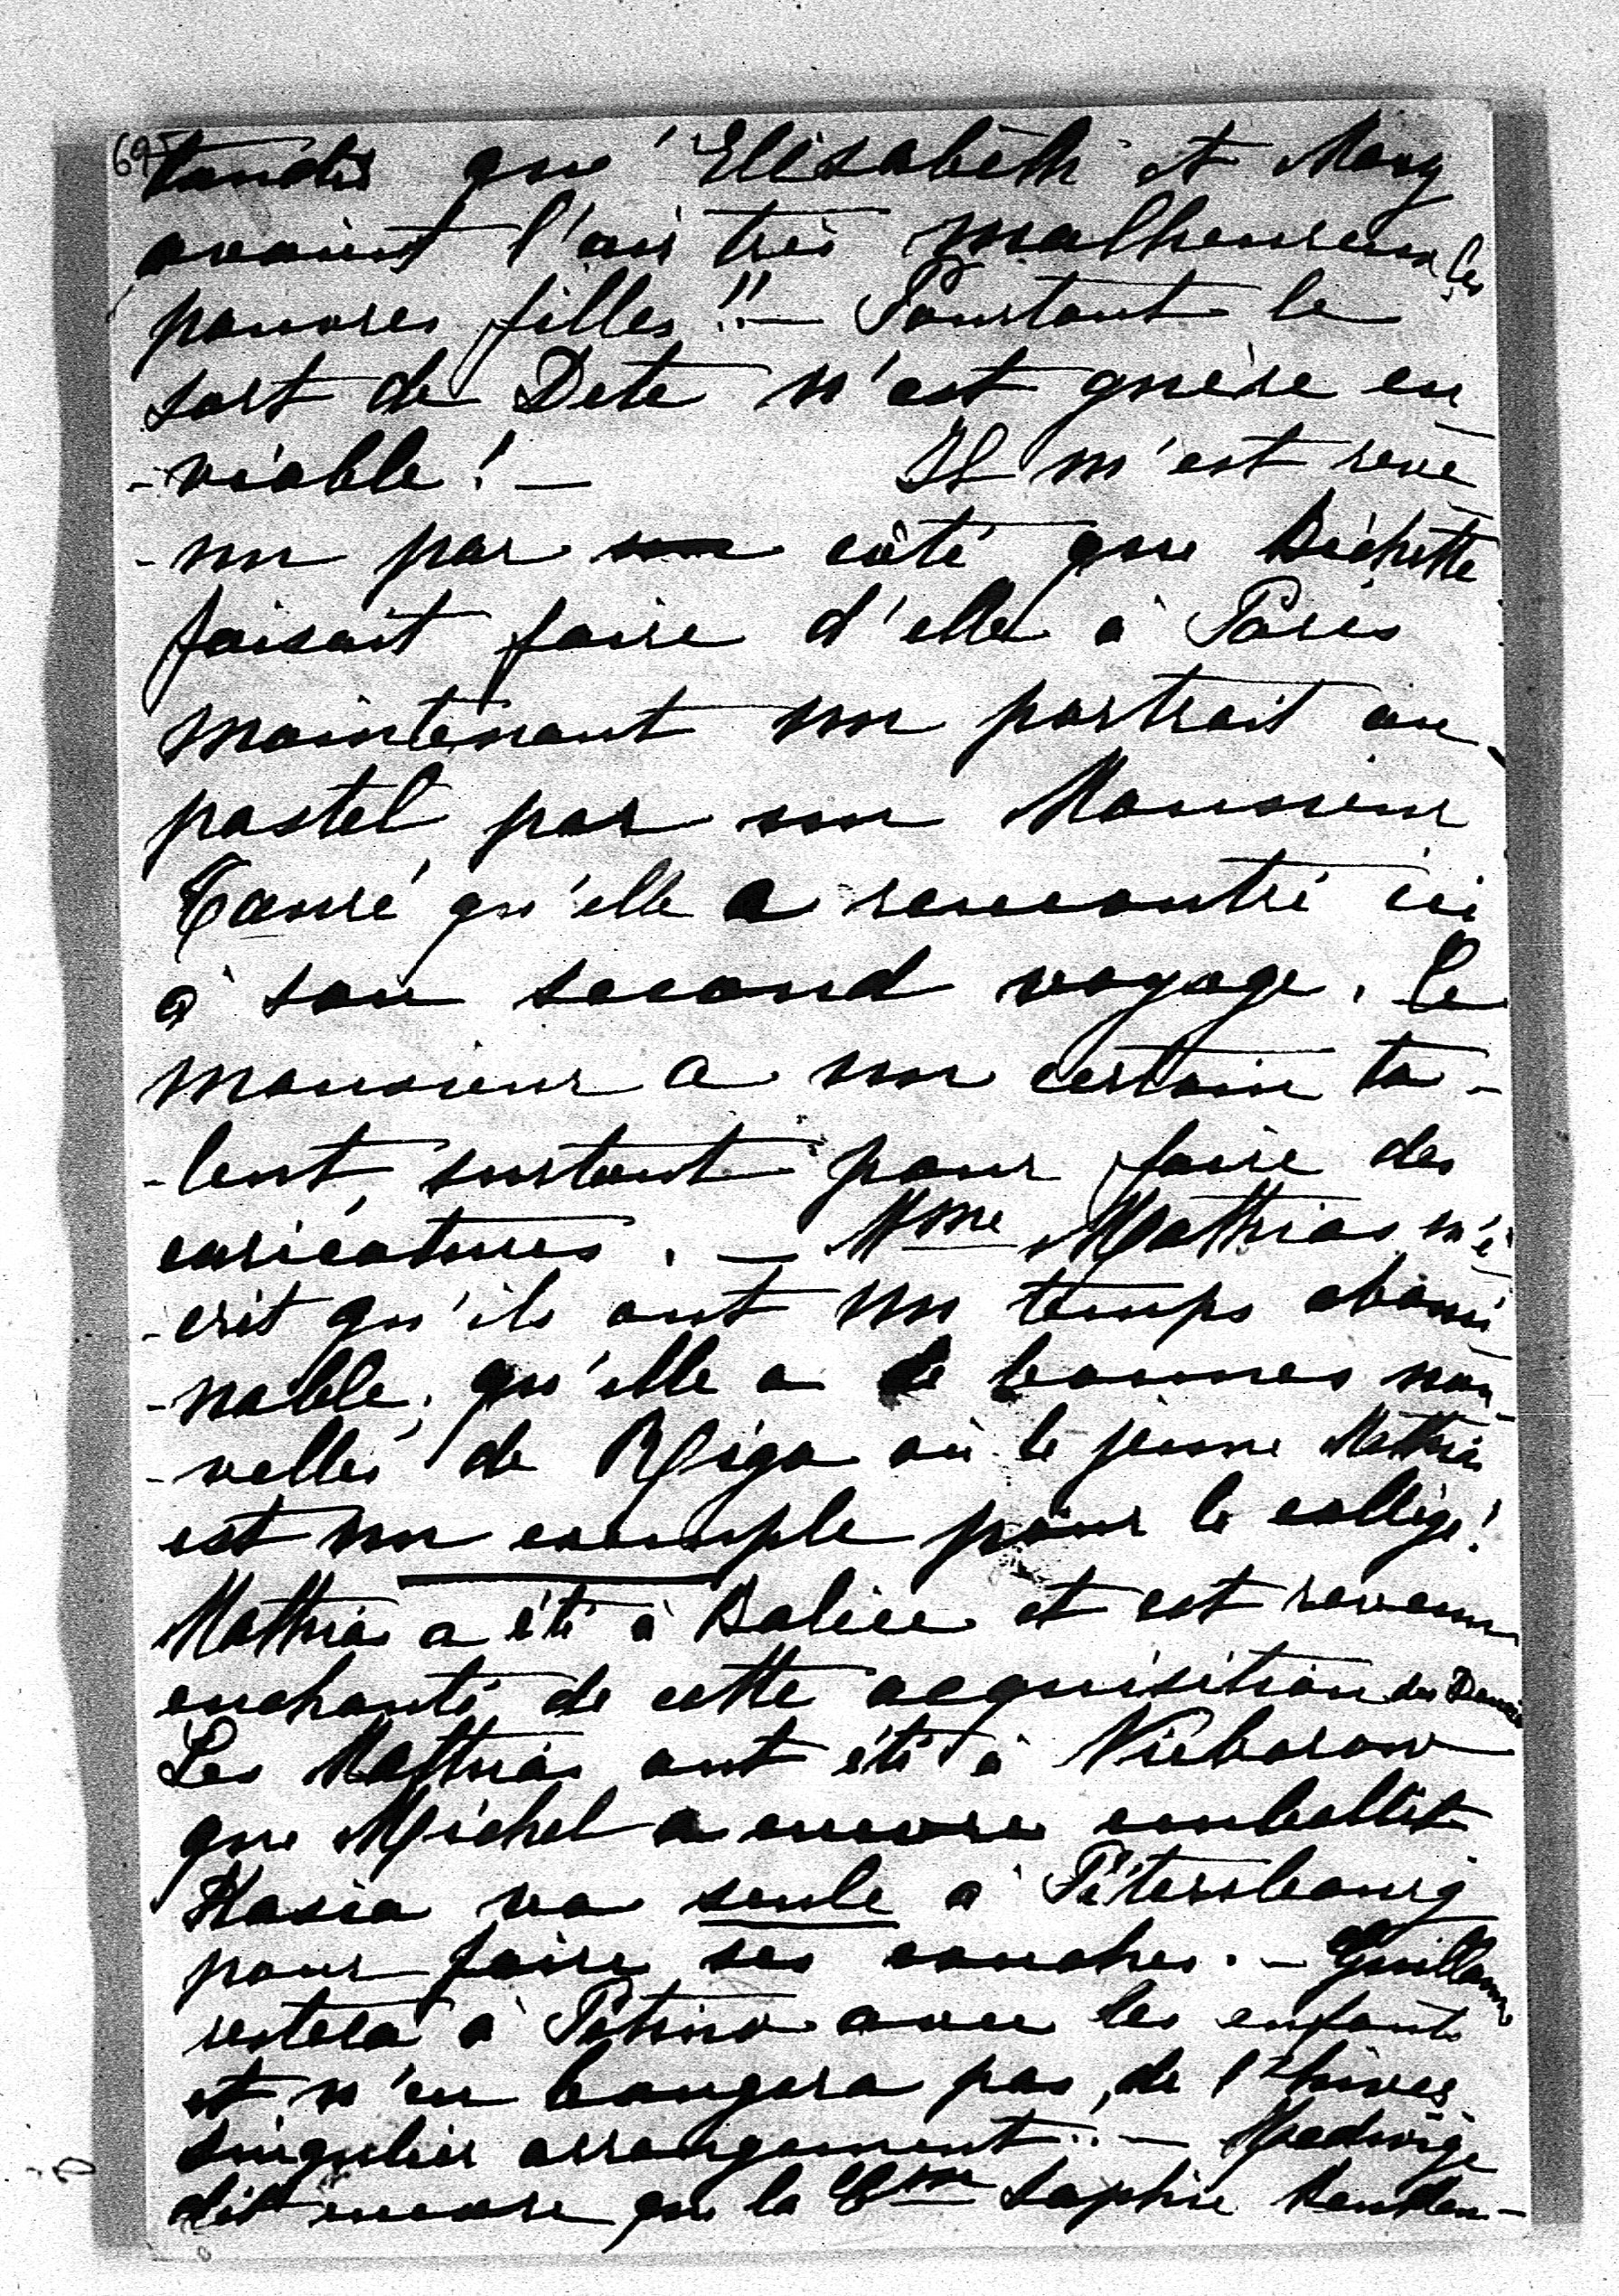 695
tandis qu'Elisabeth et Mary
avaient l'air très malheureux les
pauvres filles!! — Pourtant le
sort de Dete n'est guère en
-viable! — Il m'est reve
-nu par côté que Bichette
faisait faire d'elle à Paris
maintenant un portrait au
pastel par un Monsieur
qu'elle a rencontré ici
à son second voyage. Ce
monsieur a un certain ta-
-lent, surtout pour faire des
caricatures. — Mme Mathias m'é
-crit qu'ils ont un temps abomi
-nable, qu'elle a de bonnes nou
-velles de Riga où le jeune Mathias
est un exemple pour le collège!
Mathias a été à Balice et est revenu
enchanté de cette acquisition des
Les Mathias ont été à Nieborow
que Michel a encore embellit
va seule à Pétersbourg
pour faire ses couches. — Guillaume
restera à avec les enfants
et n'en bougera pas de l'hiver
singulier arrangement. — Hedwige
dit encore que la Ctesse Sophie